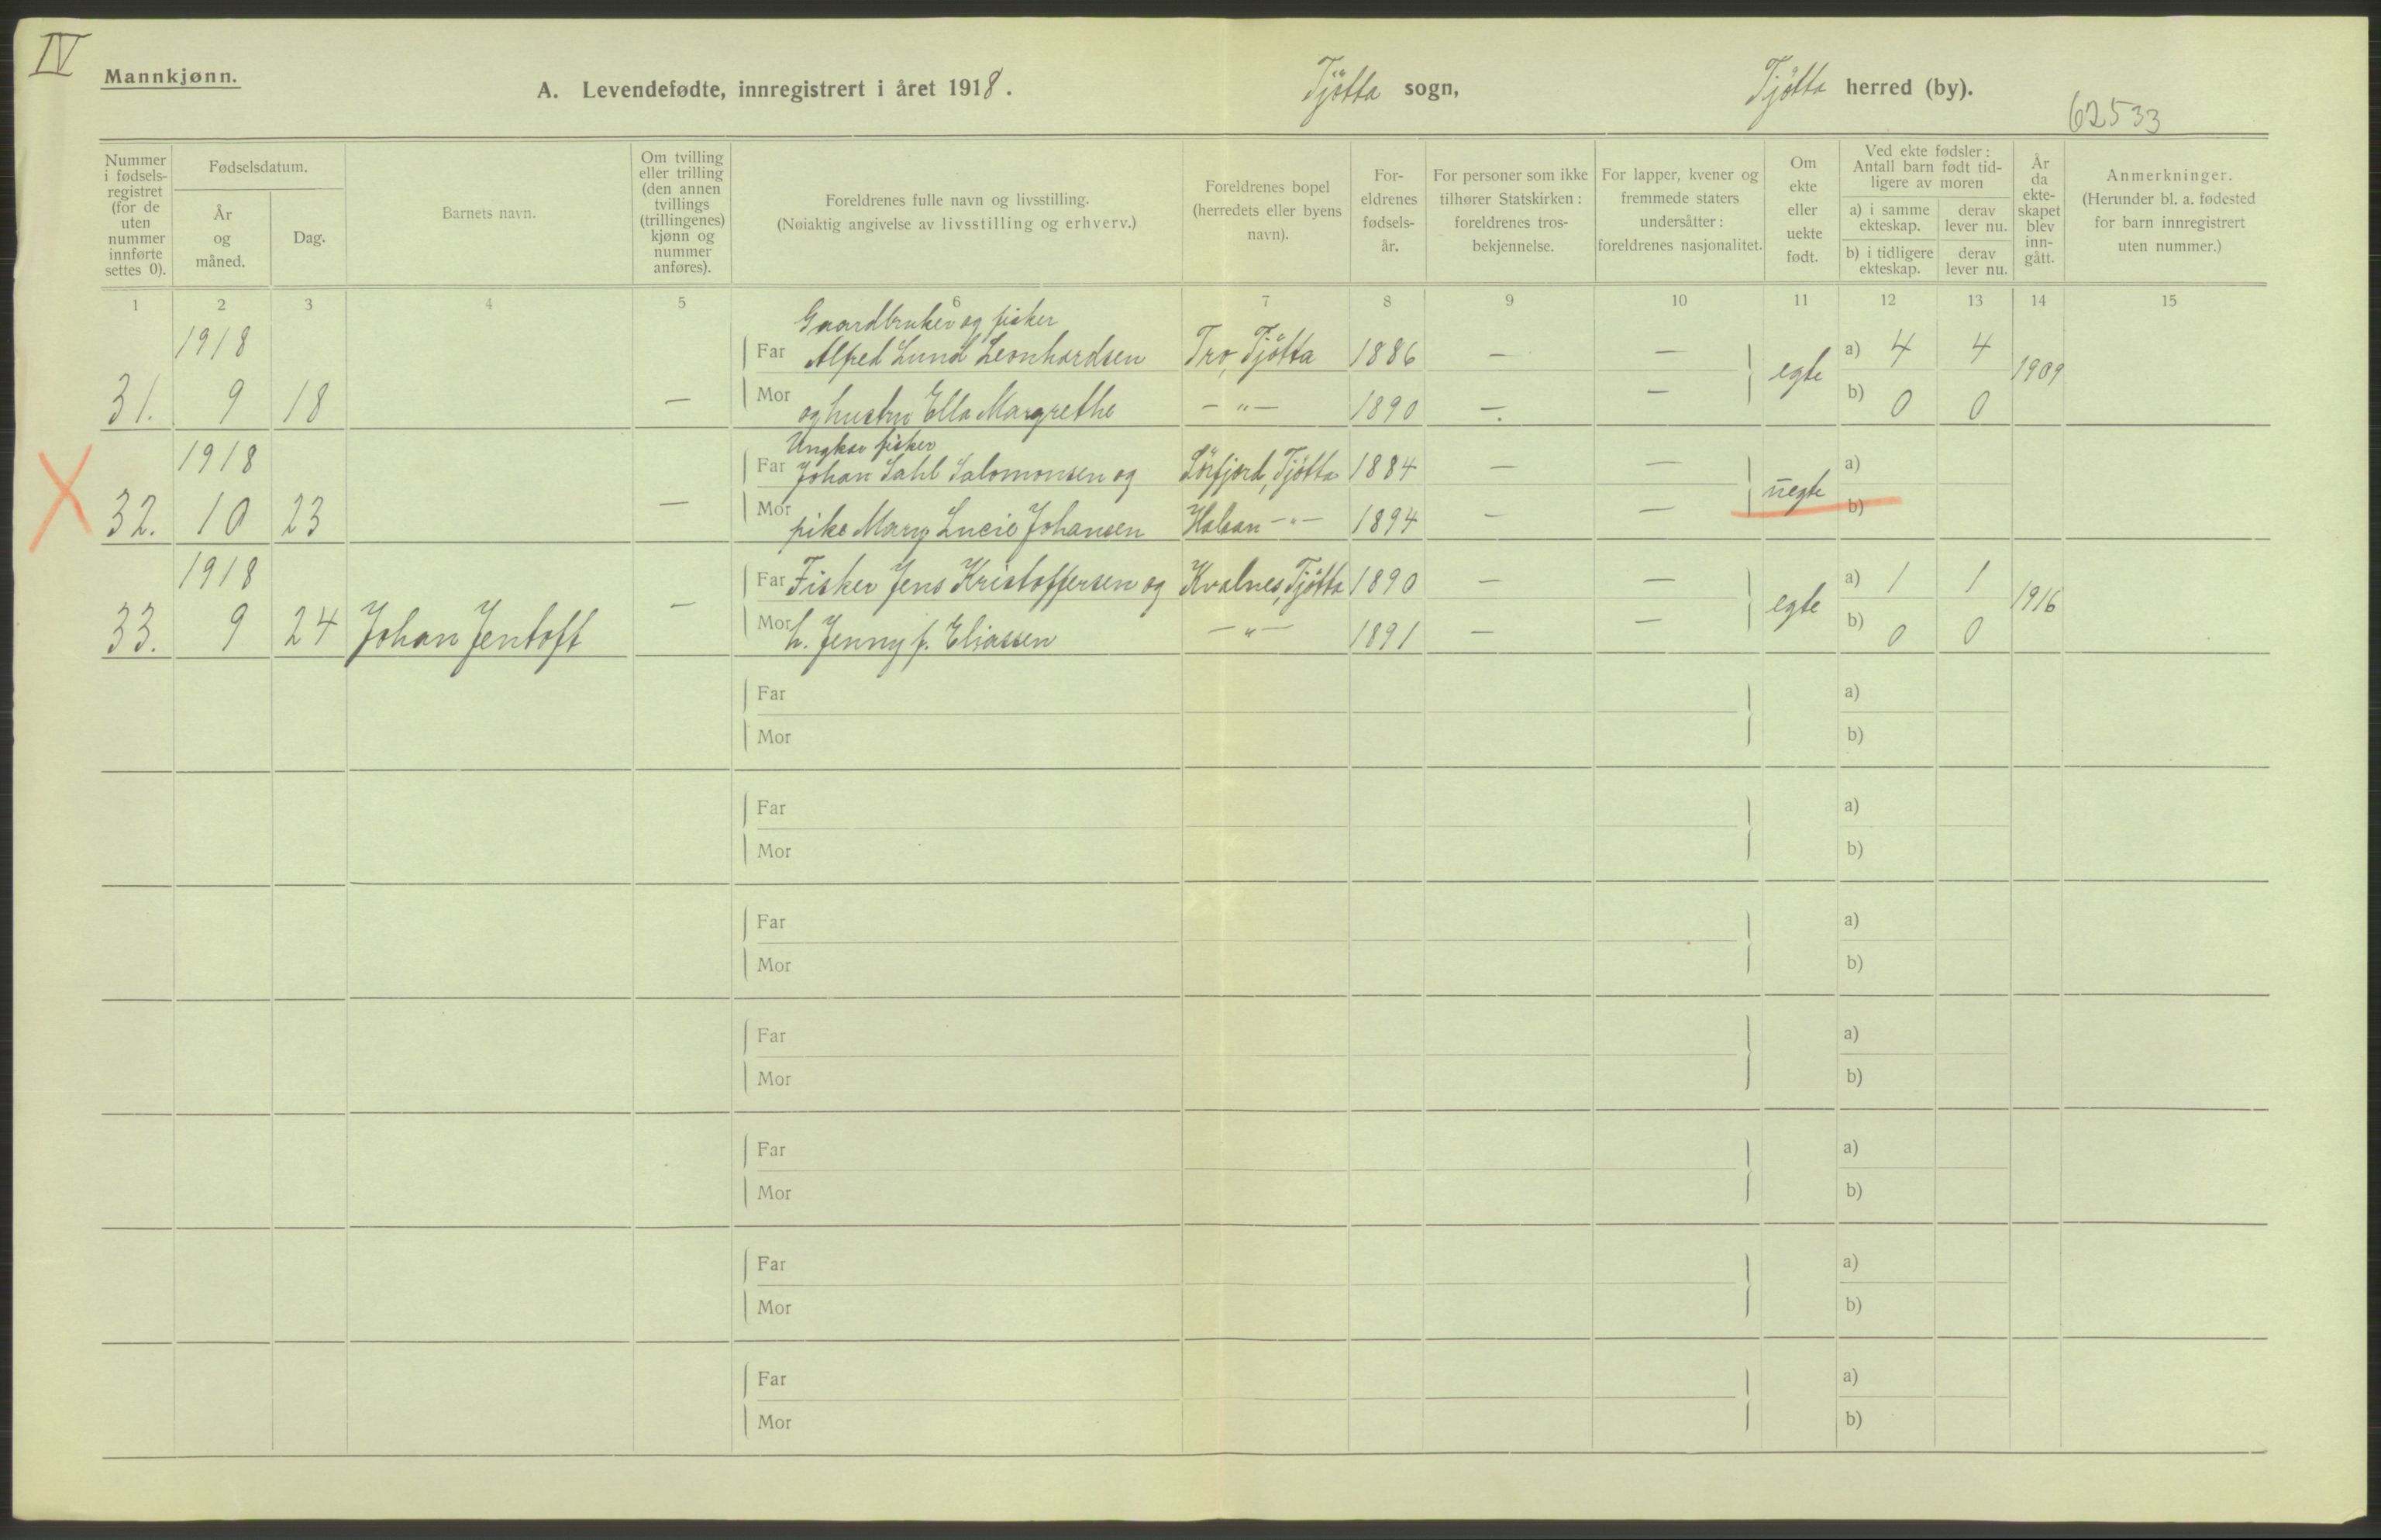 IV
Mannkjønn.
A. Levendefødte, innregistrert i året 1918.
Tjötta sogn,
Tjötta herred (by).
62533
Nummer i fødsels- registret (for de uten nummer innførte settes 0).
Fødselsdatum.
År og måned.
Dag.
Barnets navn.
Om tvilling eller trilling (den annen tvillings (trillingenes) kjønn og nummer anføres).
Foreldrenes fulle navn og livsstilling.
(Nøiaktig angivelse av livsstilling og erhverv.)
Foreldrenes bopel (herredets eller byens navn).
For- eldrenes fødsels- år.
For personer som ikke tilhører Statskirken: foreldrenes tros- bekjennelse.
For lapper, kvener og fremmede staters undersåtter: foreldrenes nasjonalitet.
Om ekte eller uekte født.
Ved ekte fødsler: Antall barn født tid- ligere av moren
a) i samme ekteskap.
derav lever nu.
b) i tidligere ekteskap.
derav lever nu.
År da ekte- skapet blev inn- gått.
Anmerkninger.
(Herunder bl. a. fødested for barn innregistrert uten nummer.)
1 2 3 4 5 6 7 8 9 10 11 12 13 14 15
Gaardbruker og fisker
1918 Far Alfred Lund Leonhardsen Tro, Tjötta 1886 — — egte a) 4 4 1909
31. 9 18 — Mor og hustru Ella Margrethe — " — 1890 — — b) 0 0
Ungkar fisker
1918 Far Johan Dahl Salomonsen og Sörfjord, Tjötta 1884 — — uegte a)
32. 10 23 — Mor pike Mary Lucie Johansen — " — 1894 — — b)
1918 Far Fisker Jens Kristoffersen og Kvalnes, Tjötta 1890 — — egte a) 1 1 1916
33. 9 24 Johan Jentoft — Mor h. Jenny f. Eliassen — " — 1891 — — b) 0 0
Far a)
Mor b)
Far a)
Mor b)
Far a)
Mor b)
Far a)
Mor b)
Far a)
Mor b)
Far a)
Mor b)
Far a)
Mor b)